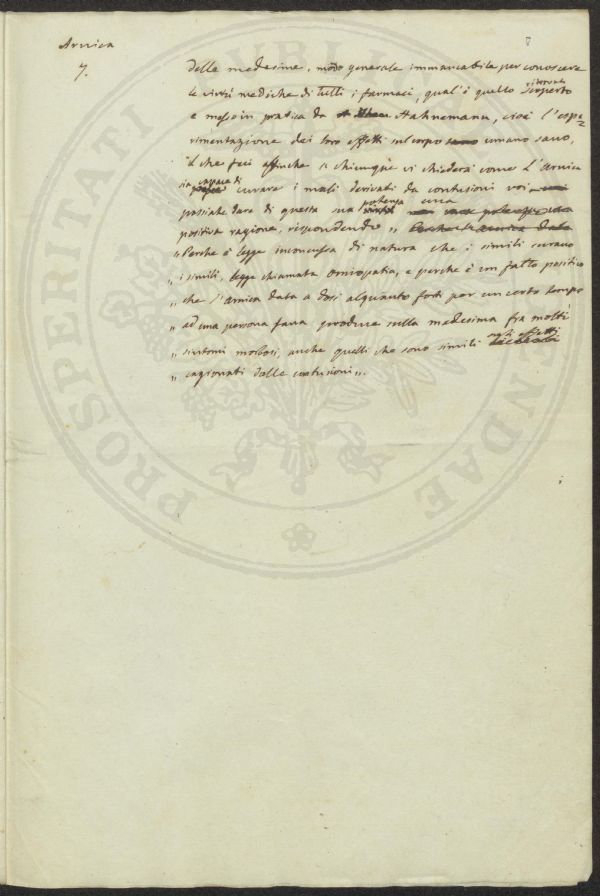 Arnica
7.
delle medesime, modo generale immancabile per conoscere
le virtù mediche di tutti i farmaci, qual'è quello scoperto
e messo in pratica da Hahnemann, cioè l'espe=
rimentazione dei loro effetti sul corpo umano sano,
il che feci affinche a chiunque vi chiederà come l'arnica
sia capace di curare i mali derivati da contusioni voi
possiate dare di questa sua potenza una
positiva ragione, rispondendo „
„ Perche è legge inconcussa di natura che i simili curano
„ i simili, legge chiamata omiopatia, e perche è un fatto positivo
„ che l'arnica data a dosi alquanto forti per un certo tempo
„ ad una persona sana produce nella medesima fra molti
„ sintomi morbosi, anche quelli che sono simili agli effetti
„ cagionati dalle contusioni „.
PROSPERITATI PUBLI ENDAE